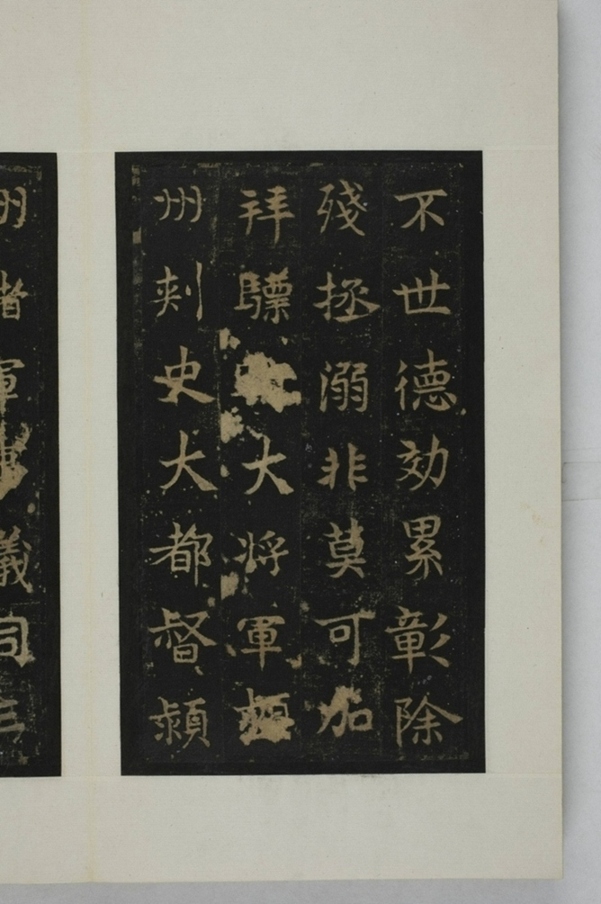 不世德効累彰除
殘拯溺非莫可加
拜驃大将軍潁
州刾史大都督潁
州諸軍事儀同三